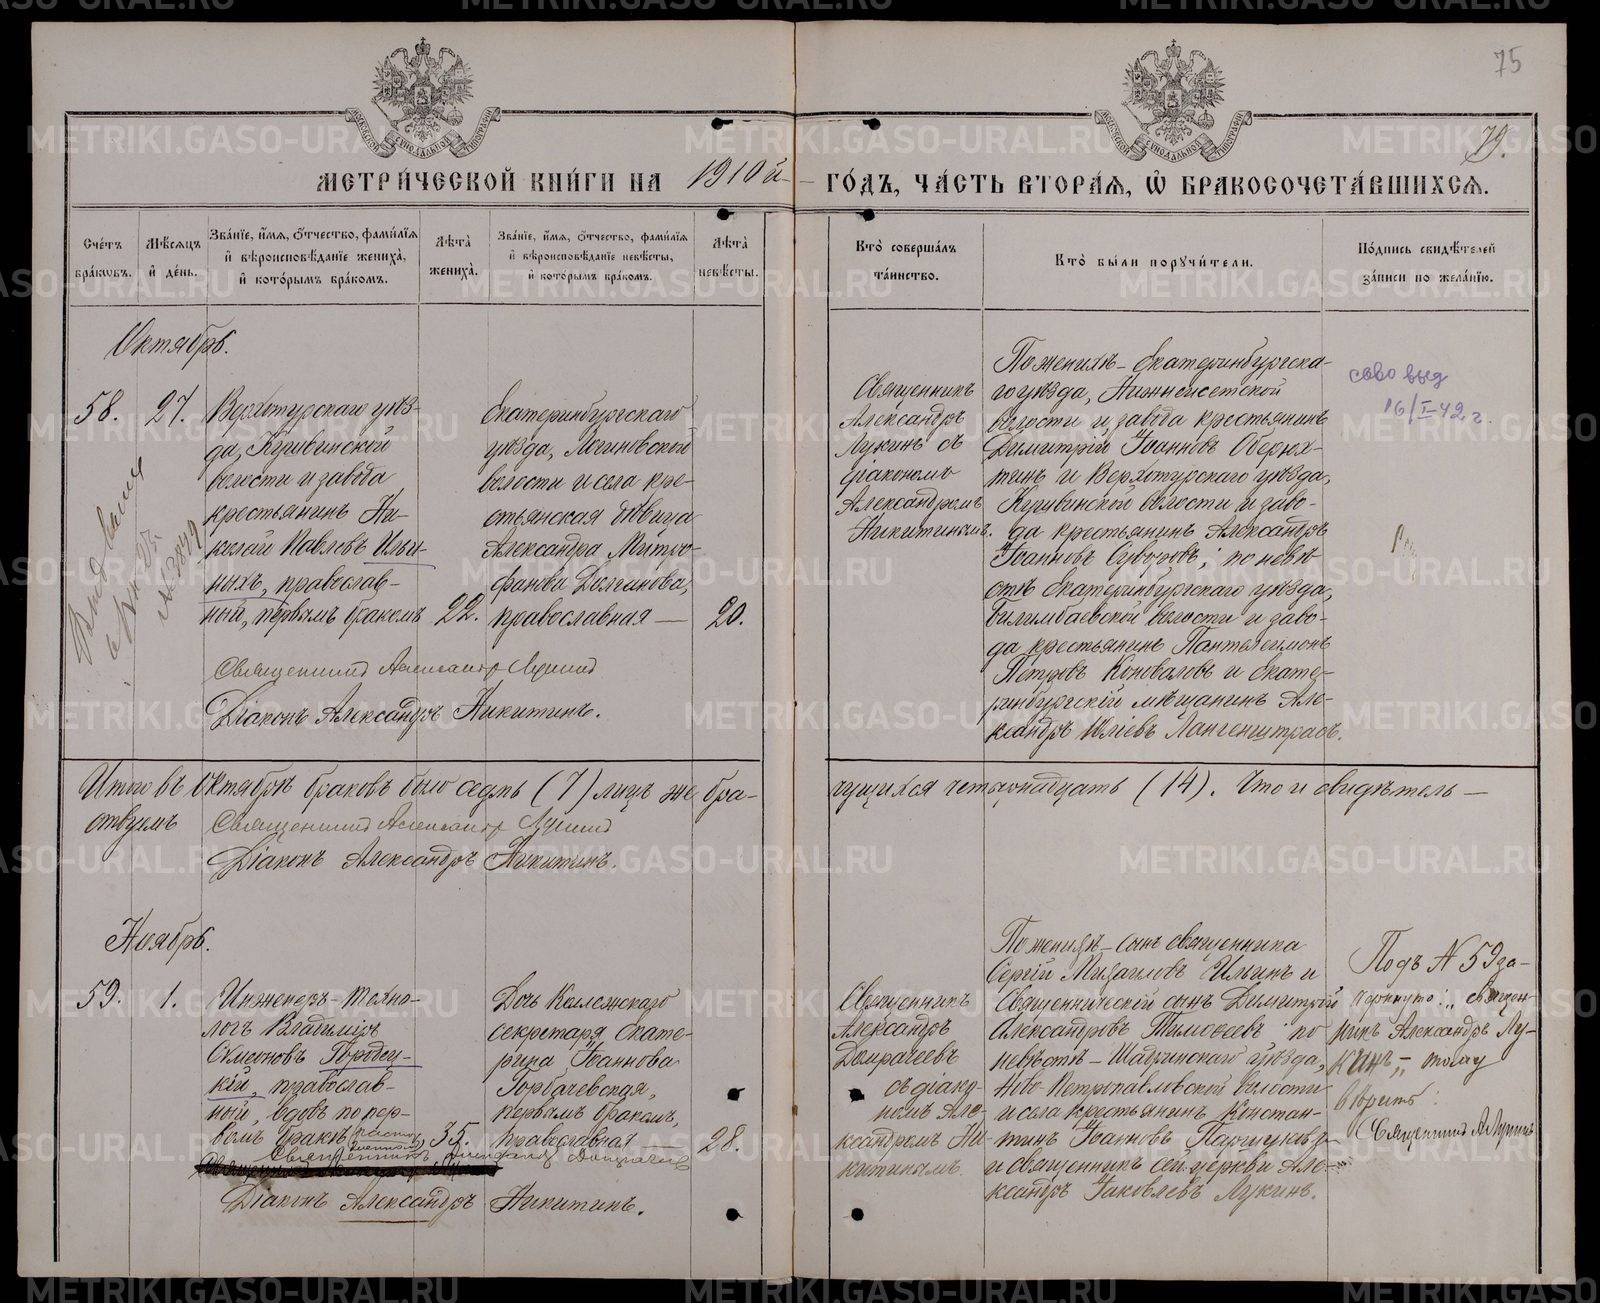 75
79.
МЕТРИ́ЧЕСКОЙ КНИ́ГИ НА 1910й ГО́ДЪ, ЧА́СТЬ ВТОРА́Я, Ѡ҆ БРАКОСОЧЕТА́ВШИХСЯ.
Сче́тъ бра́кωвъ.
Мѣ́сяцъ и҆ де́нь.
Зва́нїе, и҆́мя, о҆́тчество, фами́лїя и҆ вѣроисповѣ́данїе жениха̀, и҆ кото́рымъ бра́комъ.
Лѣ́та жениха̀.
Зва́нїе, и҆́мя, о҆́тчество, фами́лїя и҆ вѣроисповѣ́данїе невѣ́сты, и҆ кото́рымъ бра́комъ.
Лѣ́та невѣ́сты.
Кто̀ соверша́лъ та́инство.
Кто̀ бы́ли порꙋчи́тели.
По́дпись свидѣ́телей за́писи по жела́нїю.
Октябрь.
58.
27.
Верхотурскаго уѣз-
да, Кушвинской
волости и завода
крестьянинъ Ни-
колай Павловъ Ильи-
ныхъ, православ-
ный, первымъ бракомъ
22.
Екатеринбургскаго
уѣзда, Логиновской
волости и села кре-
стьянская дѣвица
Александра Митро-
фанова Долганова,
православная —
20.
Священникъ
Александръ
Лукинъ съ
діакономъ
Александромъ
Никитинымъ.
По женихѣ – Екатеринбургска-
го уѣзда, Нижнеисетской
волости и завода крестьянинъ
Димитрій Іоанновъ Оберюх-
тинъ и Верхотурскаго уѣзда,
Кушвинской волости и заво-
да крестьянинъ Александръ
Іоанновъ Суворовъ; по невѣ-
стѣ Екатеринбургскаго уѣзда,
Билимбаевской волости и заво-
да крестьянинъ Пантелеимонъ
Петровъ Коноваловъ и Екате-
ринбургскій мѣщанинъ Але-
ксандръ Юліевъ Лангенштрасъ.
16/I-42 г.
Священникъ Александръ Лукинъ
Діаконъ Александръ Никитинъ.
Итого въ Октябрѣ браковъ было седмь (7) лицъ же бра-
чущихся четырнадцать (14). Что и свидѣтель —
ствуемъ
Священникъ Александръ Лукинъ
Діаконъ Александръ Никитинъ.
Ноябрь.
59.
1.
Инженеръ-техно-
логъ Владиміръ
Симеоновъ Городец-
кій, православ-
ный, вдовъ по пер-
вомъ бракѣ
35.
Дочь Коллежскаго
секретаря Екате-
рина Іоаннова
Горбачевская,
первымъ бракомъ,
православная —
28.
Священникъ
Александръ
Дощраче­евъ
съ діако-
номъ Але-
ксандромъ Ни-
китинымъ.
По женихѣ – сынъ священника
Сергій Михаиловъ Ильинъ и
Священническій сынъ Димитрій
Александровъ Тимоѳеевъ; по
невѣстѣ – Шадринскаго уѣзда,
Ново-Петропавловской волости
и села крестьянинъ Констан-
тинъ Іоанновъ Паршуковъ
и священникъ сей церкви Але-
ксандръ Іаковлевъ Лукинъ.
Подъ № 59 за-
черкнуто: „священ-
никъ Александръ Лу-
кинъ“, – тому
вѣрить:
Священникъ А. Лукинъ
Діаконъ Александръ Никитинъ.
METRIKI.GASO-URAL.RU